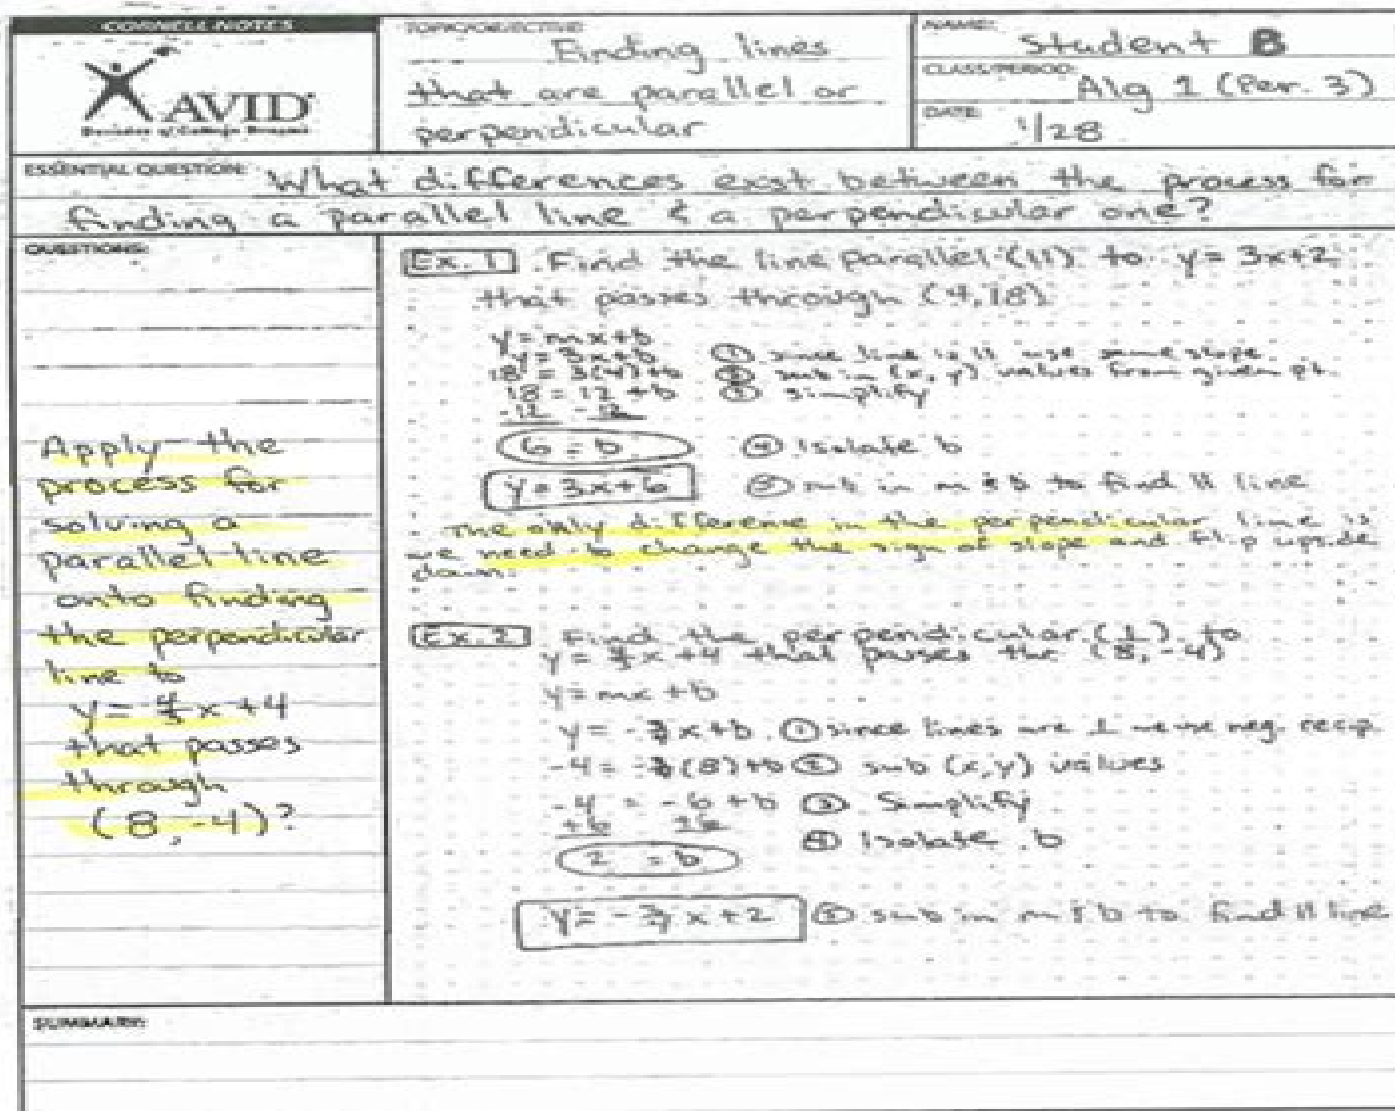 CORNELL NOTES
AVID
Decades of College Dreams
TOPIC/OBJECTIVE:
Finding lines
that are parallel or
perpendicular
NAME: Student B
CLASS/PERIOD: Alg 1 (Per. 3)
DATE: 1/28
ESSENTIAL QUESTION: What differences exist between the process for
finding a parallel line & a perpendicular one?
QUESTIONS:
Apply the
process for
solving a
parallel line
onto finding
the perpendicular
line to
y = x + 4
that passes
through
(8, -4)?
Ex. 1 Find the line parallel (11) to y = 3x+2
that passes through (4, 18)
y = mx+b
y = 3x+b ① since line is 11 use same slope
18 = 3(4)+b ② sub in (x, y) values from given pt.
18 = 12 + b ③ simplify
-12 -12
6 = b ④ Isolate b
y = 3x+6 ⑤ sub in m & b to find 11 line
The only difference in the perpendicular line is
we need to change the sign of slope and flip upside
down.
Ex. 2 Find the perpendicular (⊥) to
y = x + 4 that passes thr (8, -4)
y = mx + b
y = - x+b ① since lines are ⊥ we use neg. recip.
-4 = - (8)+b ② sub (x,y) values
-4 = -6 + b ③ Simplify
+6 +6
2 = b ④ Isolate b
y = - x+2 ⑤ sub in m & b to find 11 line
SUMMARY: